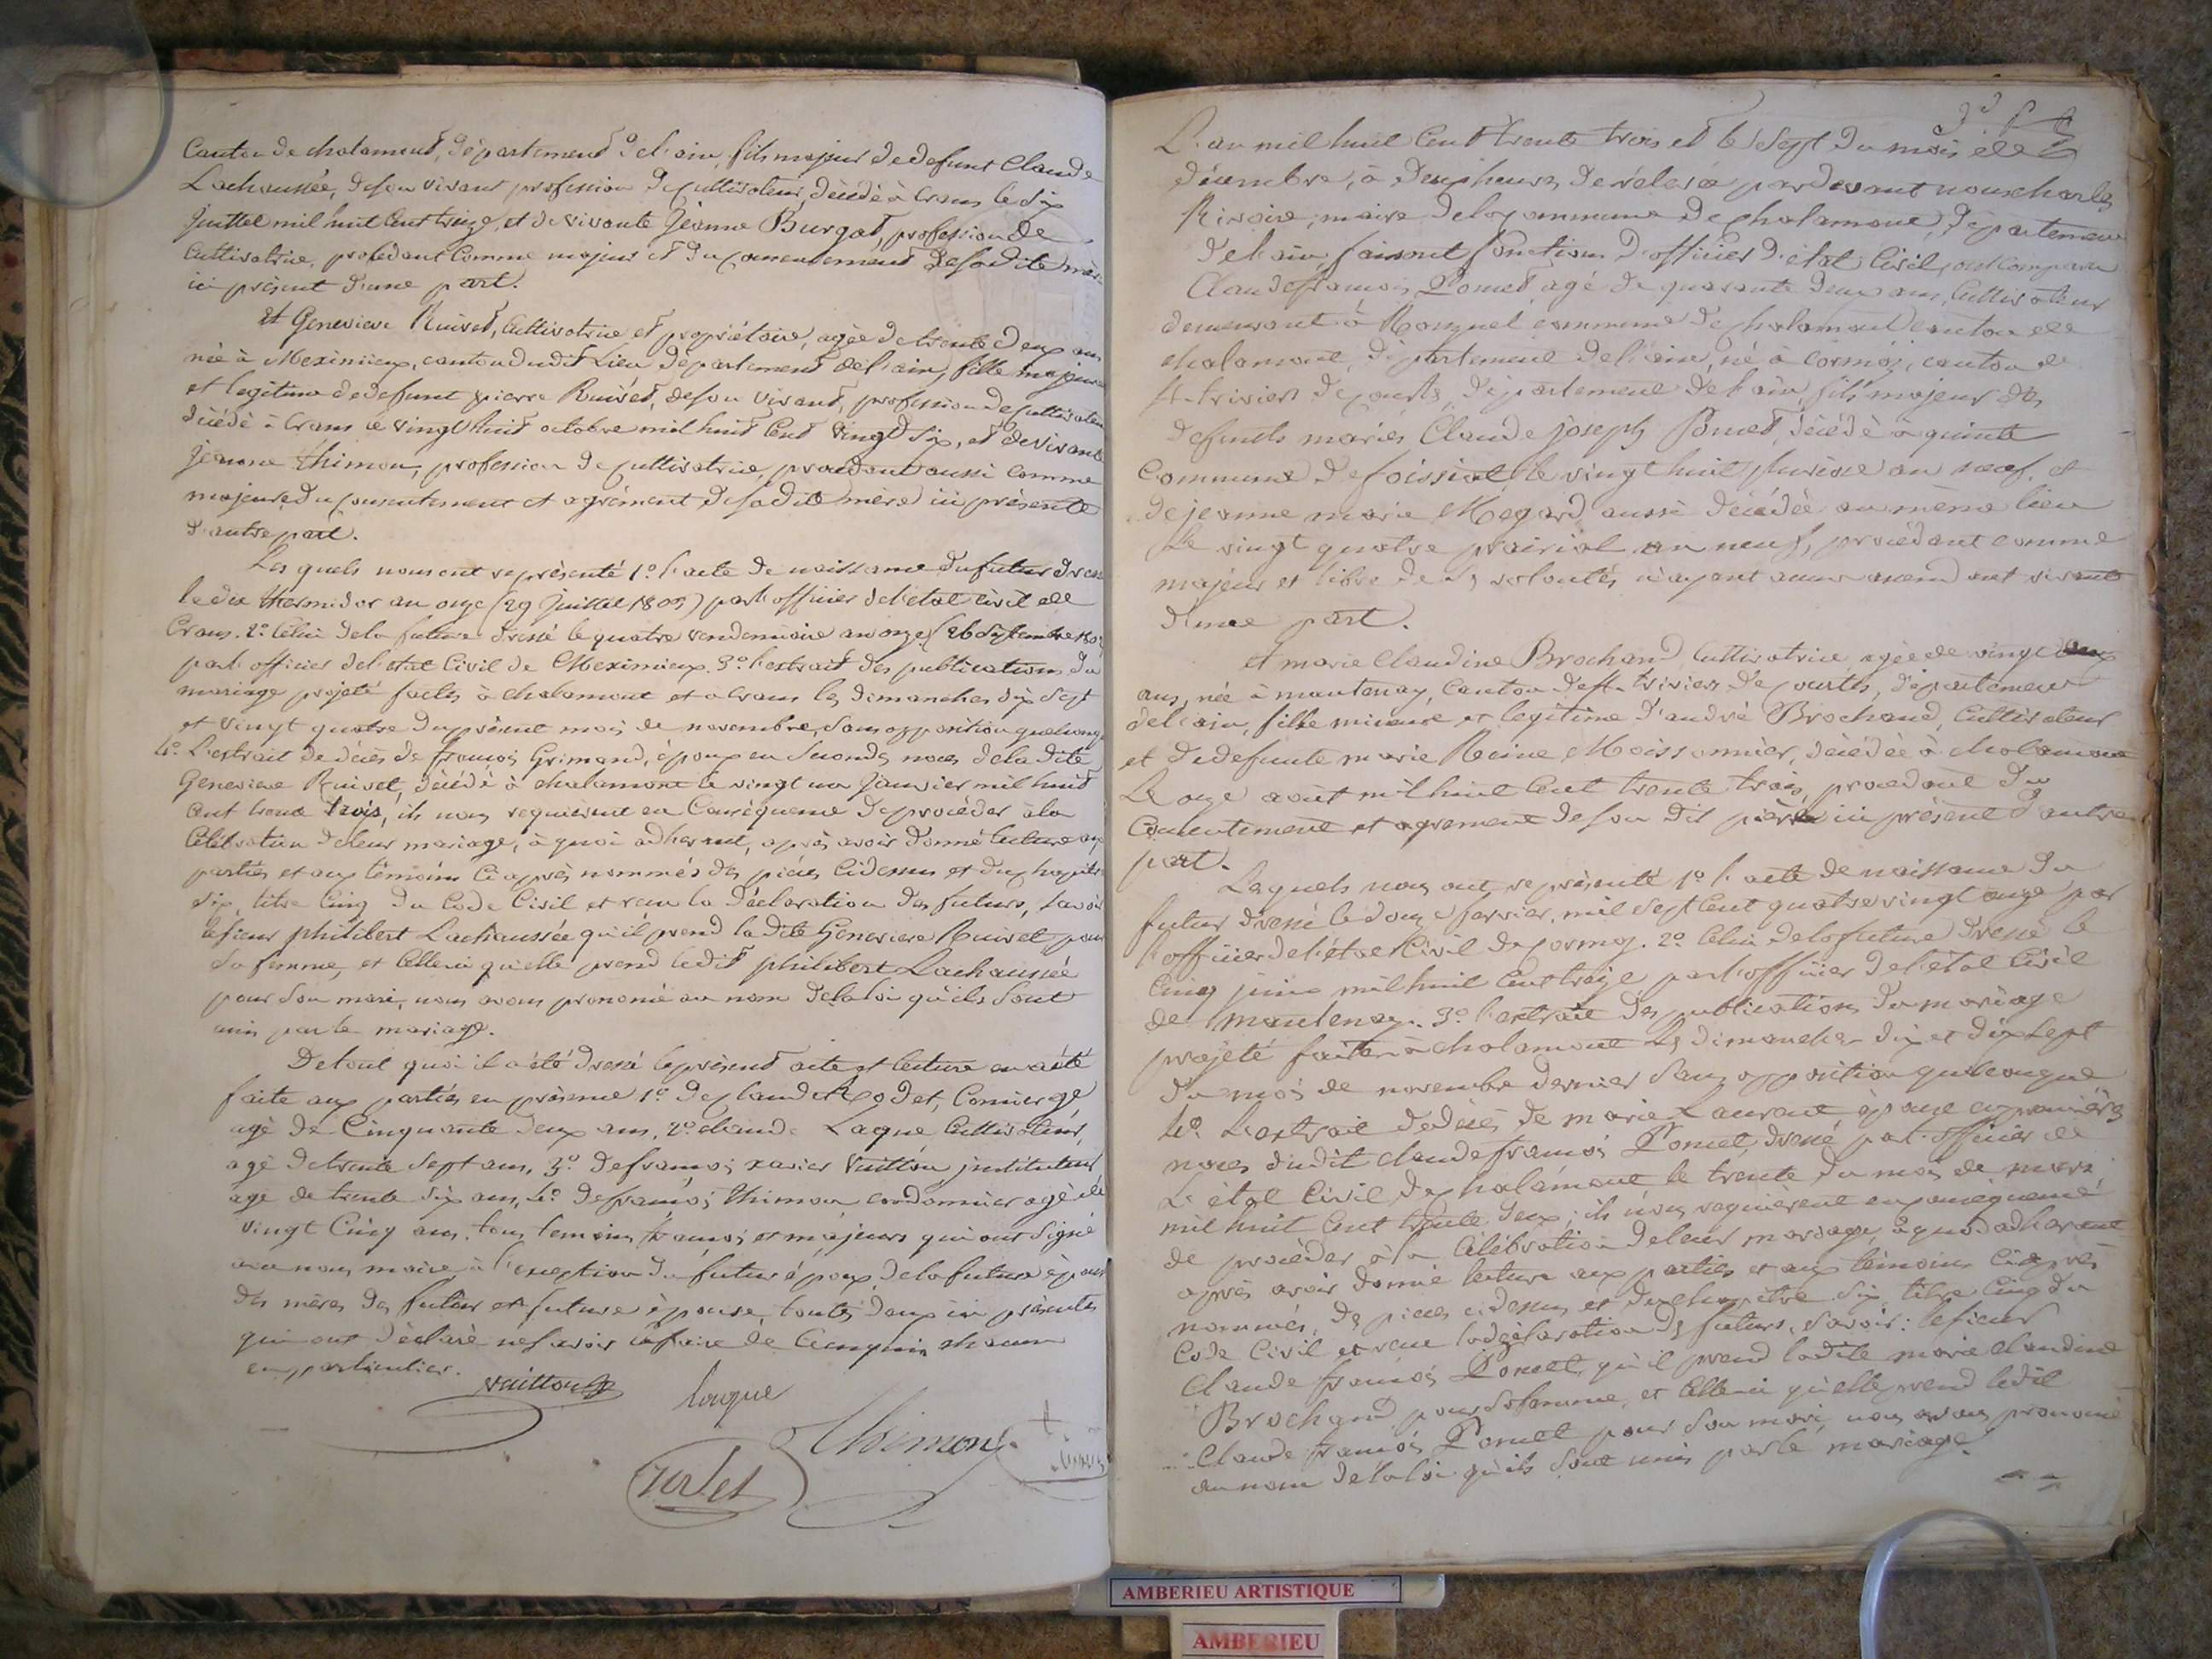 Canton de chalamont, département de l'ain, fils majeur de defunt Claude
Lachaussée, de son vivant profession de cultivateur, décédé à Crans le six
Juillet mil huit Cent treize, et de vivante Jeanne Burgat, profession de
Cultivatrice, procédant Comme majeur et du consentement de sadite mère
ici présent d'une part.
Et Genevieve Ruivet, Cultivatrice et propriétaire, agée de trente deux ans
née à Meximieux, canton dudit Lieu département de l'ain, fille majeure
et legitime de defunt pierre Ruivet, de son vivant, profession de cultivateur
décédé à Crans le vingt huit octobre mil huit Cent vingt six, et de vivante
Jeanne Thimon, profession de cultivatrice, procédant aussi comme
majeure du consentement et agrément de sadite mère ici présente
d'autre part.
Les quels nous ont représenté 1o. l'acte de naissance du futur dressé
le dix thermidor an onze (29 Juillet 1803) par l'officier de l'état civil de
Crans. 2o. Celui de la future dressé le quatre vendemiaire an onze (26 Septembre 180
par l'officier de l'état Civil de Meximieux. 3o. l'extrait des publications du
mariage projeté faites à chalamont et à crans les dimanches dix sept
et vingt quatre du présent mois de novembre, sans opposition quelconque
4o. L'extrait de décès de françois Grimand, époux en secondes noces de la dite
Genevieve Ruivet, décédé à chalamont le vingt un Janvier mil huit
cent trente trois, ils nous requierent en Conséquence de procéder à la
Célébration de leur mariage, à quoi adherant, après avoir donné lecture aux
parties et aux témoins ci après nommés des pièces ci dessus et du chapitre
six, titre Cinq du Code Civil et reçu la déclaration des futurs, savoir
le sieur philibert Lachaussée qu'il prend la dite Genevieve Ruivet pour
sa femme, et Celle ci qu'elle prend ledit philibert Lachaussée
pour son mari, nous avons prononcé au nom de la loi qu'ils sont
unis par le mariage.
De tout quoi il a été dressé le présent acte et lecture en a été
faite aux parties en présence 1o. de Claude Rodet, Concierge
agé de Cinquante deux ans, 2o. claude Laque Cultivateur,
agé de trente sept ans, 3o. de françois xavier Vuitton instituteur
agé de trente six ans, 4o. de françois Thimon cordonnier agé de
vingt Cinq ans, tous temoins français et majeurs qui ont signé
avec nous maire, à l'exception du futur époux, de la future épouse
des mères des futur et future épouse, toutes deux ici présentes
qui ont déclaré ne savoir le faire de ce enquis chacun
en particulier.
Vuitton
laque
Thimon
rodet
L'an mil huit Cent trente trois et le sept du mois de
décembre, à deux heures de relevée pardevant nous charles
Rivoire, maire de la commune de chalamont, département
de l'ain faisant fonction d'officier d'état Civil, ont comparu
Claude françois Poncet, agé de quarante deux ans, Cultivateur
demeurant à Ronzuel commune de chalamont canton de
chalamont, département de l'ain, né à Cormoz, canton de
St trivier de courtes, département de l'ain, fils majeur des
defunts mariés Claude joseph Poncet, décédé à
commune de foissiat, le vingt huit pluviose an neuf, et
de jeanne marie Megard, aussi décédée au même lieu
le vingt quatre prairial an neuf, procédant comme
majeur et libre de ses volontés n'ayant aucun ascendant vivant
d'une part.
et marie Claudine Brochand, cultivatrice, agée de vingt
ans, née à mantenay, Canton de St trivier de courtes, département
de l'ain, fille mineure et legitime d'andré Brochand, Cultivateur
et de defunte marie Reine Moissonnier, décédée à chalamont
Le onze août mil huit Cent trente trois, procédant du
Consentement et agrement de son dit père ici présent d'autre
part.
Lesquels nous ont représenté 1o. l'acte de naissance du
futur dressé le douze fevrier mil sept cent quatre vingt onze par
l'officier de l'état Civil de cormoz. 2o. Celui de la future dressé le
Cinq juin mil huit Cent treize par l'officier de l'état Civil
de mantenay. 3o. l'extrait des publications du mariage
projeté faites à chalamont les dimanches dix et dix sept
du mois de novembre dernier sans opposition quelconque
4o. L'extrait de décès de marie Laurent épouse en premières
noces dudit claude françois Poncet, dressé par l'officier de
l'état Civil de chalamont le trente du mois de mars
mil huit Cent trente deux; ils nous requierent en consequence
de procéder à la Célébration de leur mariage, à quoi adherant
après avoir donné lecture aux parties et aux témoins ci après
nommés, des pièces ci dessus et du chapitre six titre Cinq du
Code Civil et reçu la déclaration des futurs, savoir: le sieur
Claude françois Poncet qu'il prend ladite marie claudine
Brochand pour sa femme, et Celle ci qu'elle prend ledit
Claude françois Poncet pour son mari, nous avons prononcé
au nom de la loi qu'ils sont unis par le mariage.
AMBERIEU ARTISTIQUE
AMBERIEU